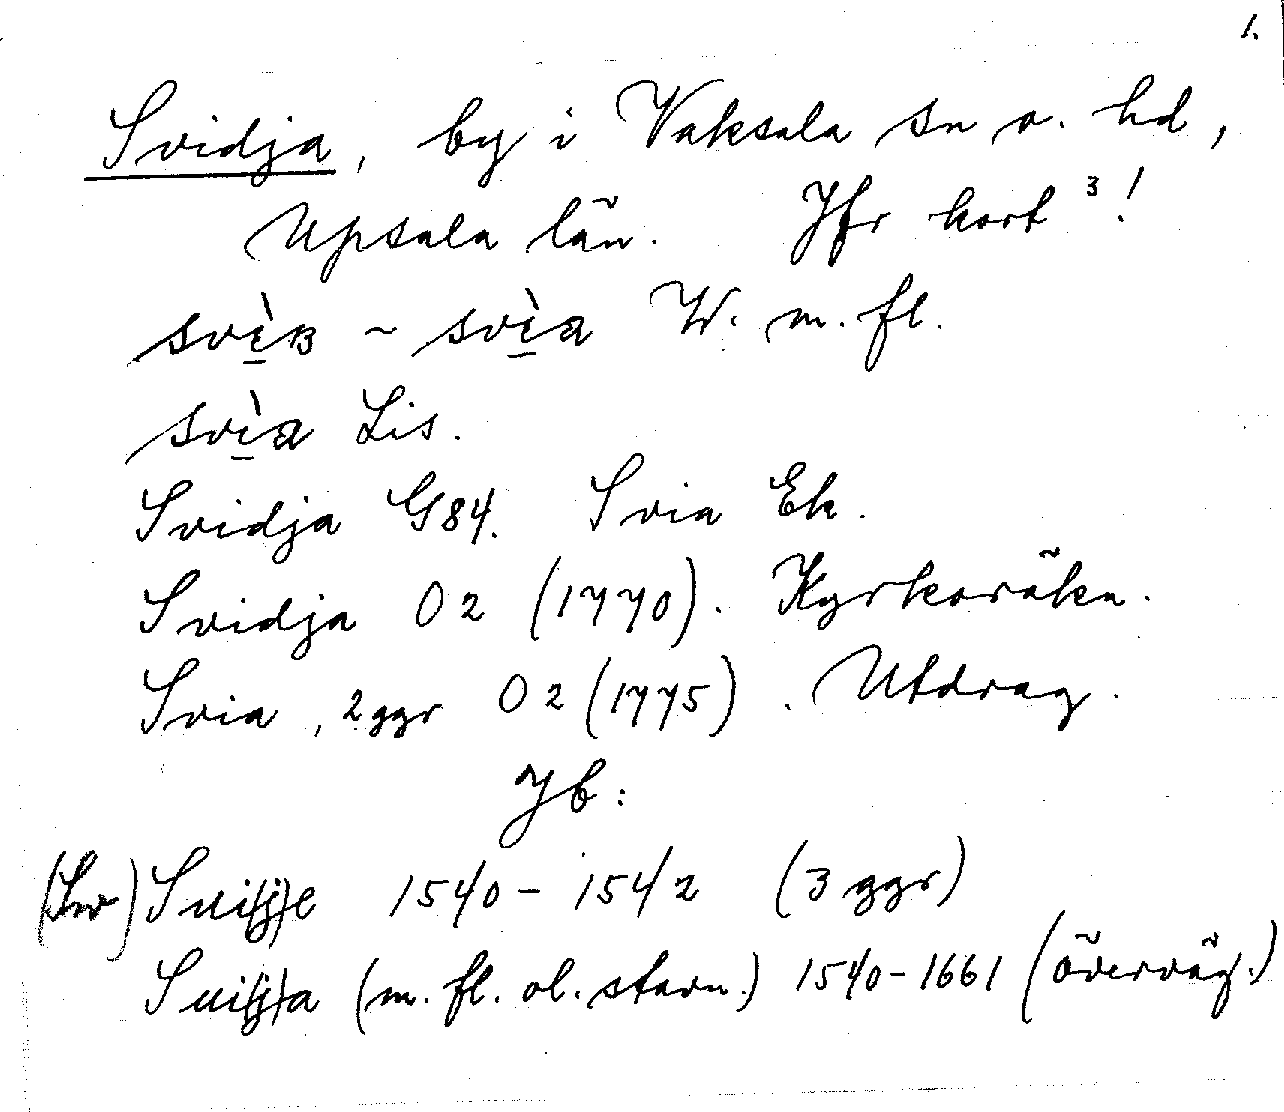 1.
Svidja, by i Vaksala sn o. hd,
Upsala län. Jfr kort 3!
svìB ~ svìa W. m. fl.
svìa Lis.
Svidja G84. Svia Ek.
Svidja O2 (1770). Kyrkoräkn.
Svia, 2 ggr O2 (1775). Utdrag.
Jb:
(Sw) Sui(g)e 1540-1542 (3 ggr)
Sui(g)a (m. fl. ol. stavn.) 1540-1661 (överväg.)